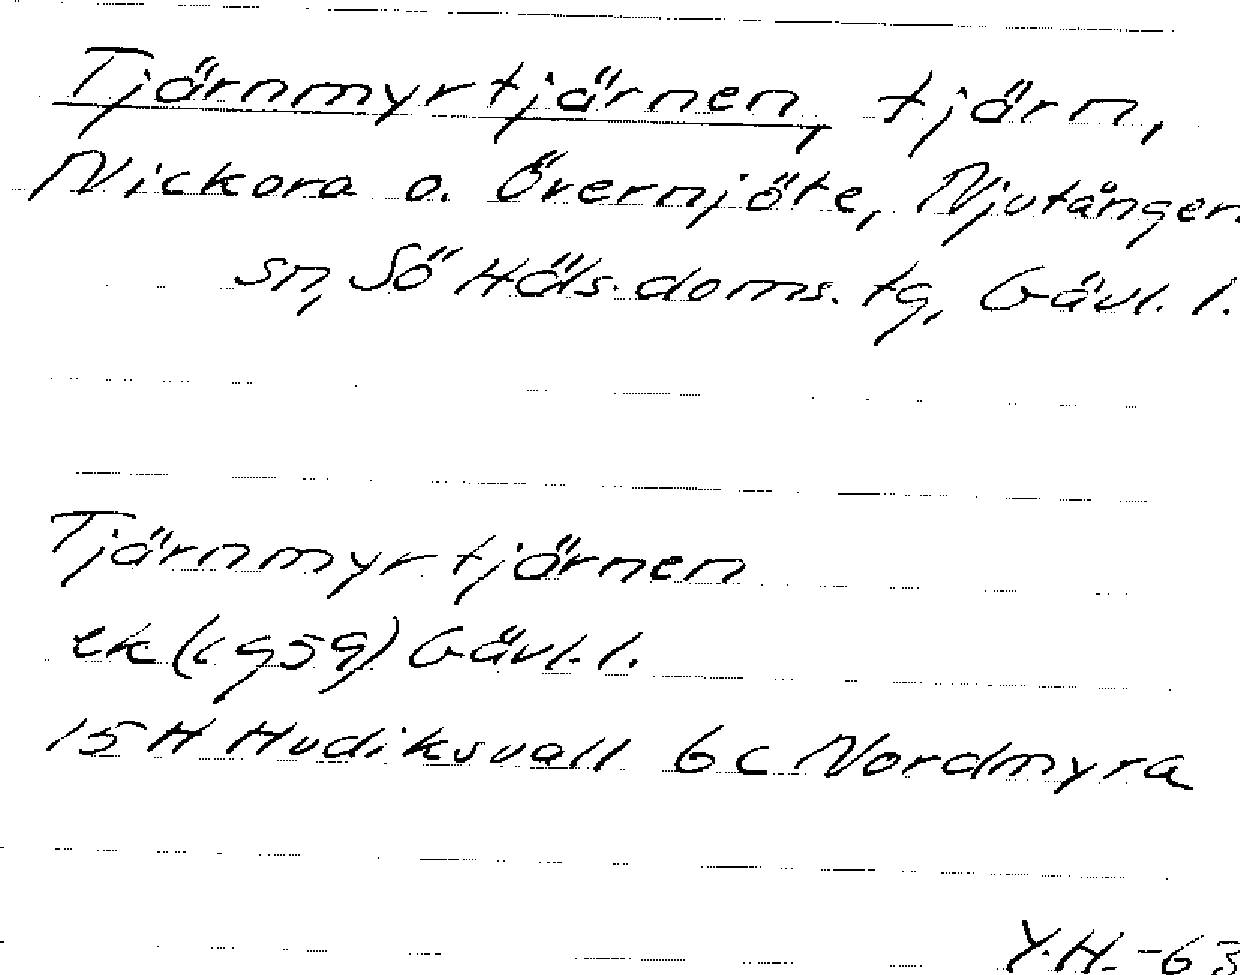 Tjärnmyrtjärnen, tjärn,
Nickora o. Övernjöte, Njutånger
sn, Sö Häls. doms. tg, Gävl. l.
Tjärnmyrtjärnen
ek (c959) Gävl. l.
15 H Hudiksvall 6c Nordmyra
Y.H. -63